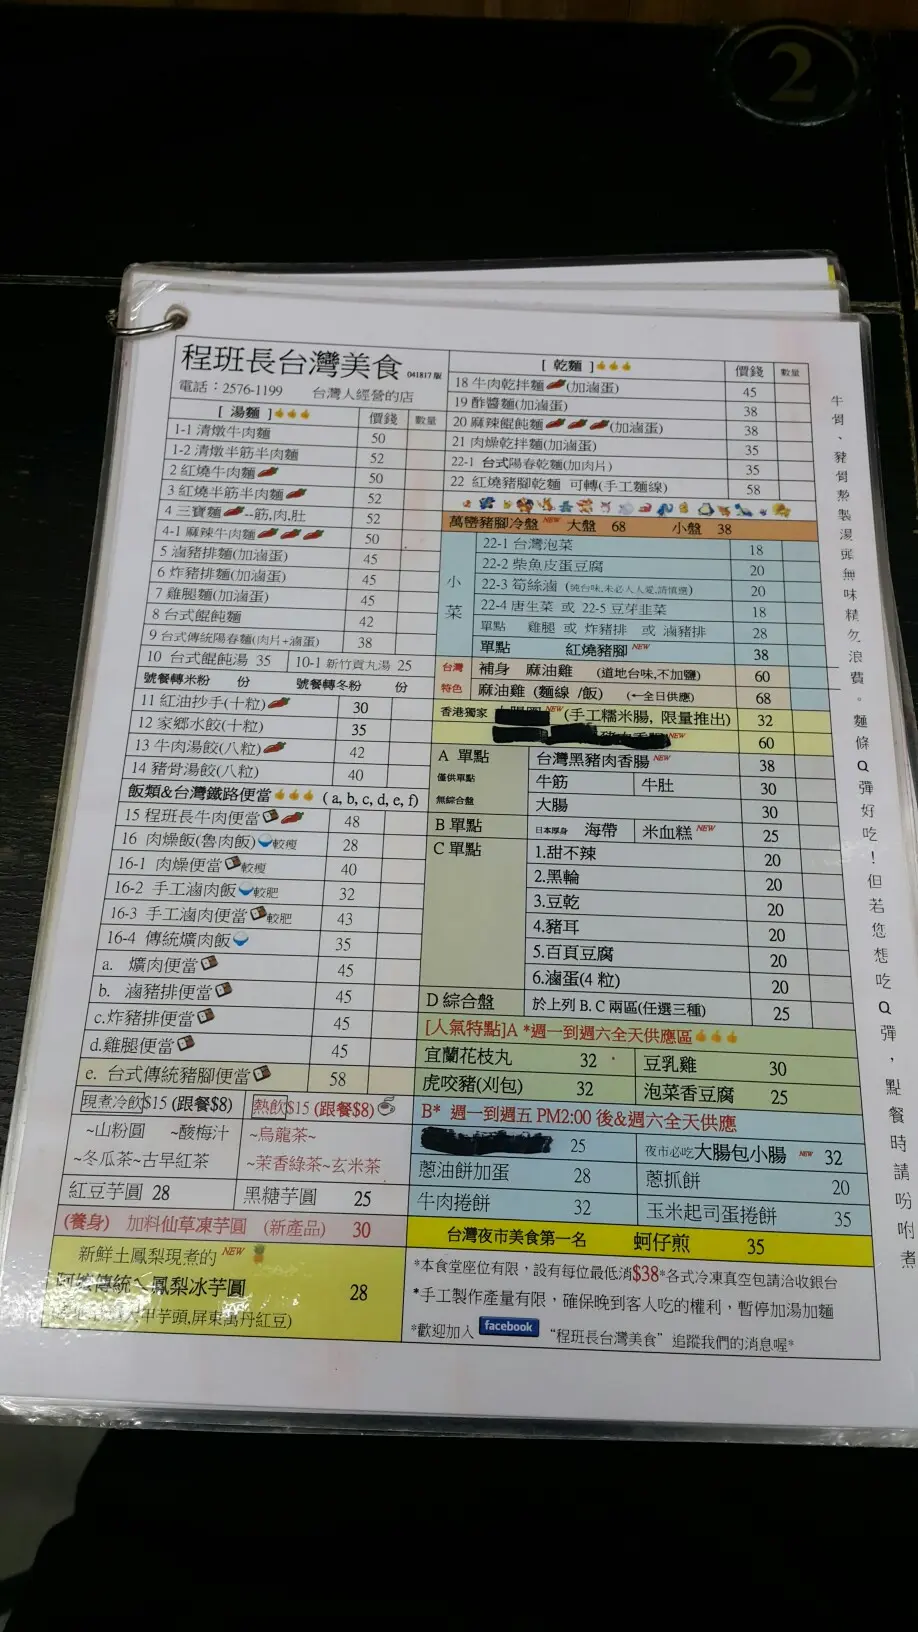 2
程班長台灣美食 041817 版
電話：2576-1199 台灣人經營的店
[ 湯麵 ] 價錢 數量
1-1 清燉牛肉麵 50
1-2 清燉半筋半肉麵 52
2 紅燒牛肉麵 50
3 紅燒半筋半肉麵 52
4 三寶麵--筋,肉,肚 52
4-1 麻辣牛肉麵 50
5 滷豬排麵(加滷蛋) 45
6 炸豬排麵(加滷蛋) 45
7 雞腿麵(加滷蛋) 45
8 台式餛飩麵 42
9 台式傳統陽春麵(肉片+滷蛋) 38
10 台式餛飩湯 35 10-1 新竹貢丸湯 25
號餐轉米粉 份 號餐轉冬粉 份
11 紅油抄手(十粒) 30
12 家鄉水餃(十粒) 35
13 牛肉湯餃(八粒) 42
14 豬骨湯餃(八粒) 40
飯類&台灣鐵路便當 ( a, b, c, d, e, f)
15 程班長牛肉便當 48
16 肉燥飯(魯肉飯) 較瘦 28
16-1 肉燥便當 較瘦 40
16-2 手工滷肉飯 較肥 32
16-3 手工滷肉便當 較肥 43
16-4 傳統爌肉飯 35
a. 爌肉便當 45
b. 滷豬排便當 45
c.炸豬排便當 45
d.雞腿便當 45
e. 台式傳統豬腳便當 58
現煮冷飲$15 (跟餐$8) 熱飲$15 (跟餐$8)
~山粉圓 ~酸梅汁 ~烏龍茶~
~冬瓜茶~古早紅茶 ~茉香綠茶~玄米茶
紅豆芋圓 28 黑糖芋圓 25
(養身) 加料仙草凍芋圓 (新產品) 30
新鮮土鳳梨現煮的 NEW
傳統~鳳梨冰芋圓 28
甲芋頭,屏東萬丹紅豆)
[ 乾麵 ] 價錢 數量
18 牛肉乾拌麵(加滷蛋) 45
19 酢醬麵(加滷蛋) 38
20 麻辣餛飩麵(加滷蛋) 38
21 肉燥乾拌麵(加滷蛋) 35
22-1 台式陽春乾麵(加肉片) 35
22 紅燒豬腳乾麵 可轉(手工麵線) 58
萬巒豬腳冷盤 NEW 大盤 68 小盤 38
小菜
22-1 台灣泡菜 18
22-2 柴魚皮蛋豆腐 20
22-3 筍絲滷 (純台味,未必人人愛,請慎選) 20
22-4 唐生菜 或 22-5 豆芽韭菜 18
單點 雞腿 或 炸豬排 或 滷豬排 28
單點 紅燒豬腳 NEW 38
台灣 補身 麻油雞 (道地台味,不加鹽) 60
特色 麻油雞 (麵線 /飯) (←全日供應) 68
香港獨家 NEW (手工糯米腸, 限量推出) 32
NEW 60
A 單點 台灣黑豬肉香腸 NEW 38
僅供單點 牛筋 牛肚 30
無綜合盤 大腸 30
B 單點 日本厚身 海帶 米血糕 NEW 25
C 單點 1.甜不辣 20
2.黑輪 20
3.豆乾 20
4.豬耳 20
5.百頁豆腐 20
6.滷蛋(4 粒) 20
D 綜合盤 於上列 B. C 兩區(任選三種) 25
[人氣特點]A *週一到週六全天供應區
宜蘭花枝丸 32 豆乳雞 30
虎咬豬(刈包) 32 泡菜香豆腐 25
B* 週一到週五 PM2:00 後&週六全天供應
25 夜市必吃大腸包小腸 NEW 32
蔥油餅加蛋 28 蔥抓餅 20
牛肉捲餅 32 玉米起司蛋捲餅 35
台灣夜市美食第一名 蚵仔煎 35
*本食堂座位有限，設有每位最低消$38*各式冷凍真空包請洽收銀台
*手工製作產量有限，確保晚到客人吃的權利，暫停加湯加麵
*歡迎加入 facebook “程班長台灣美食” 追蹤我們的消息喔*
牛骨、豬骨熬製湯頭無味精勿浪費。麵條Q彈好吃！但若您想吃Q彈，點餐時請吩咐煮